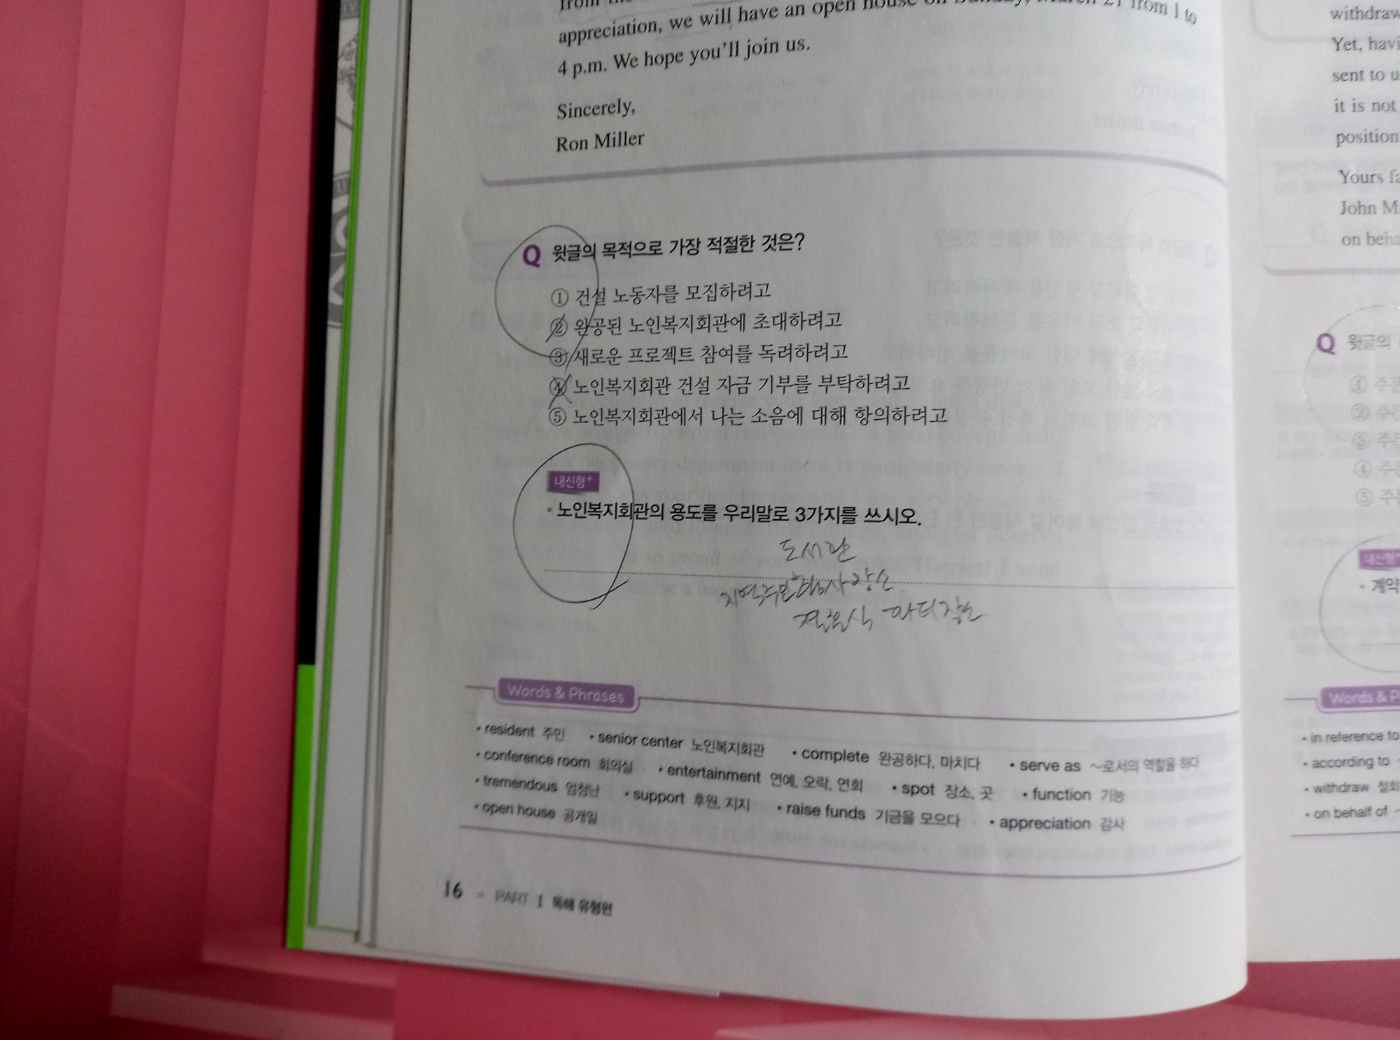 from the
appreciation, we will have an open house on Sunday, March 21 from 1 to
4 p.m. We hope you'll join us.
Sincerely,
Ron Miller
Q 윗글의 목적으로 가장 적절한 것은?
① 건설 노동자를 모집하려고
② 완공된 노인복지회관에 초대하려고
③ 새로운 프로젝트 참여를 독려하려고
④ 노인복지회관 건설 자금 기부를 부탁하려고
⑤ 노인복지회관에서 나는 소음에 대해 항의하려고
내신형+
• 노인복지회관의 용도를 우리말로 3가지를 쓰시오.
도서관
지역주민 회의 장소
파티장소
Words & Phrases
• resident 주민 • senior center 노인복지회관 • complete 완공하다, 마치다 • serve as ~로서의 역할을 하다
• conference room 회의실 • entertainment 연예, 오락, 연회 • spot 장소, 곳 • function 기능
• tremendous 엄청난 • support 후원, 지지 • raise funds 기금을 모으다 • appreciation 감사
• open house 공개일
16 • PART I 독해 유형편
withdraw
Yet, havi
sent to u
it is not
position
Yours fa
John M
on beha
Q 윗글의
① 주
② 주
③ 주
④ 주
⑤ 주
내신형
• 계약
Words & P
• in reference to
• according to
• withdraw 철회
• on behalf of